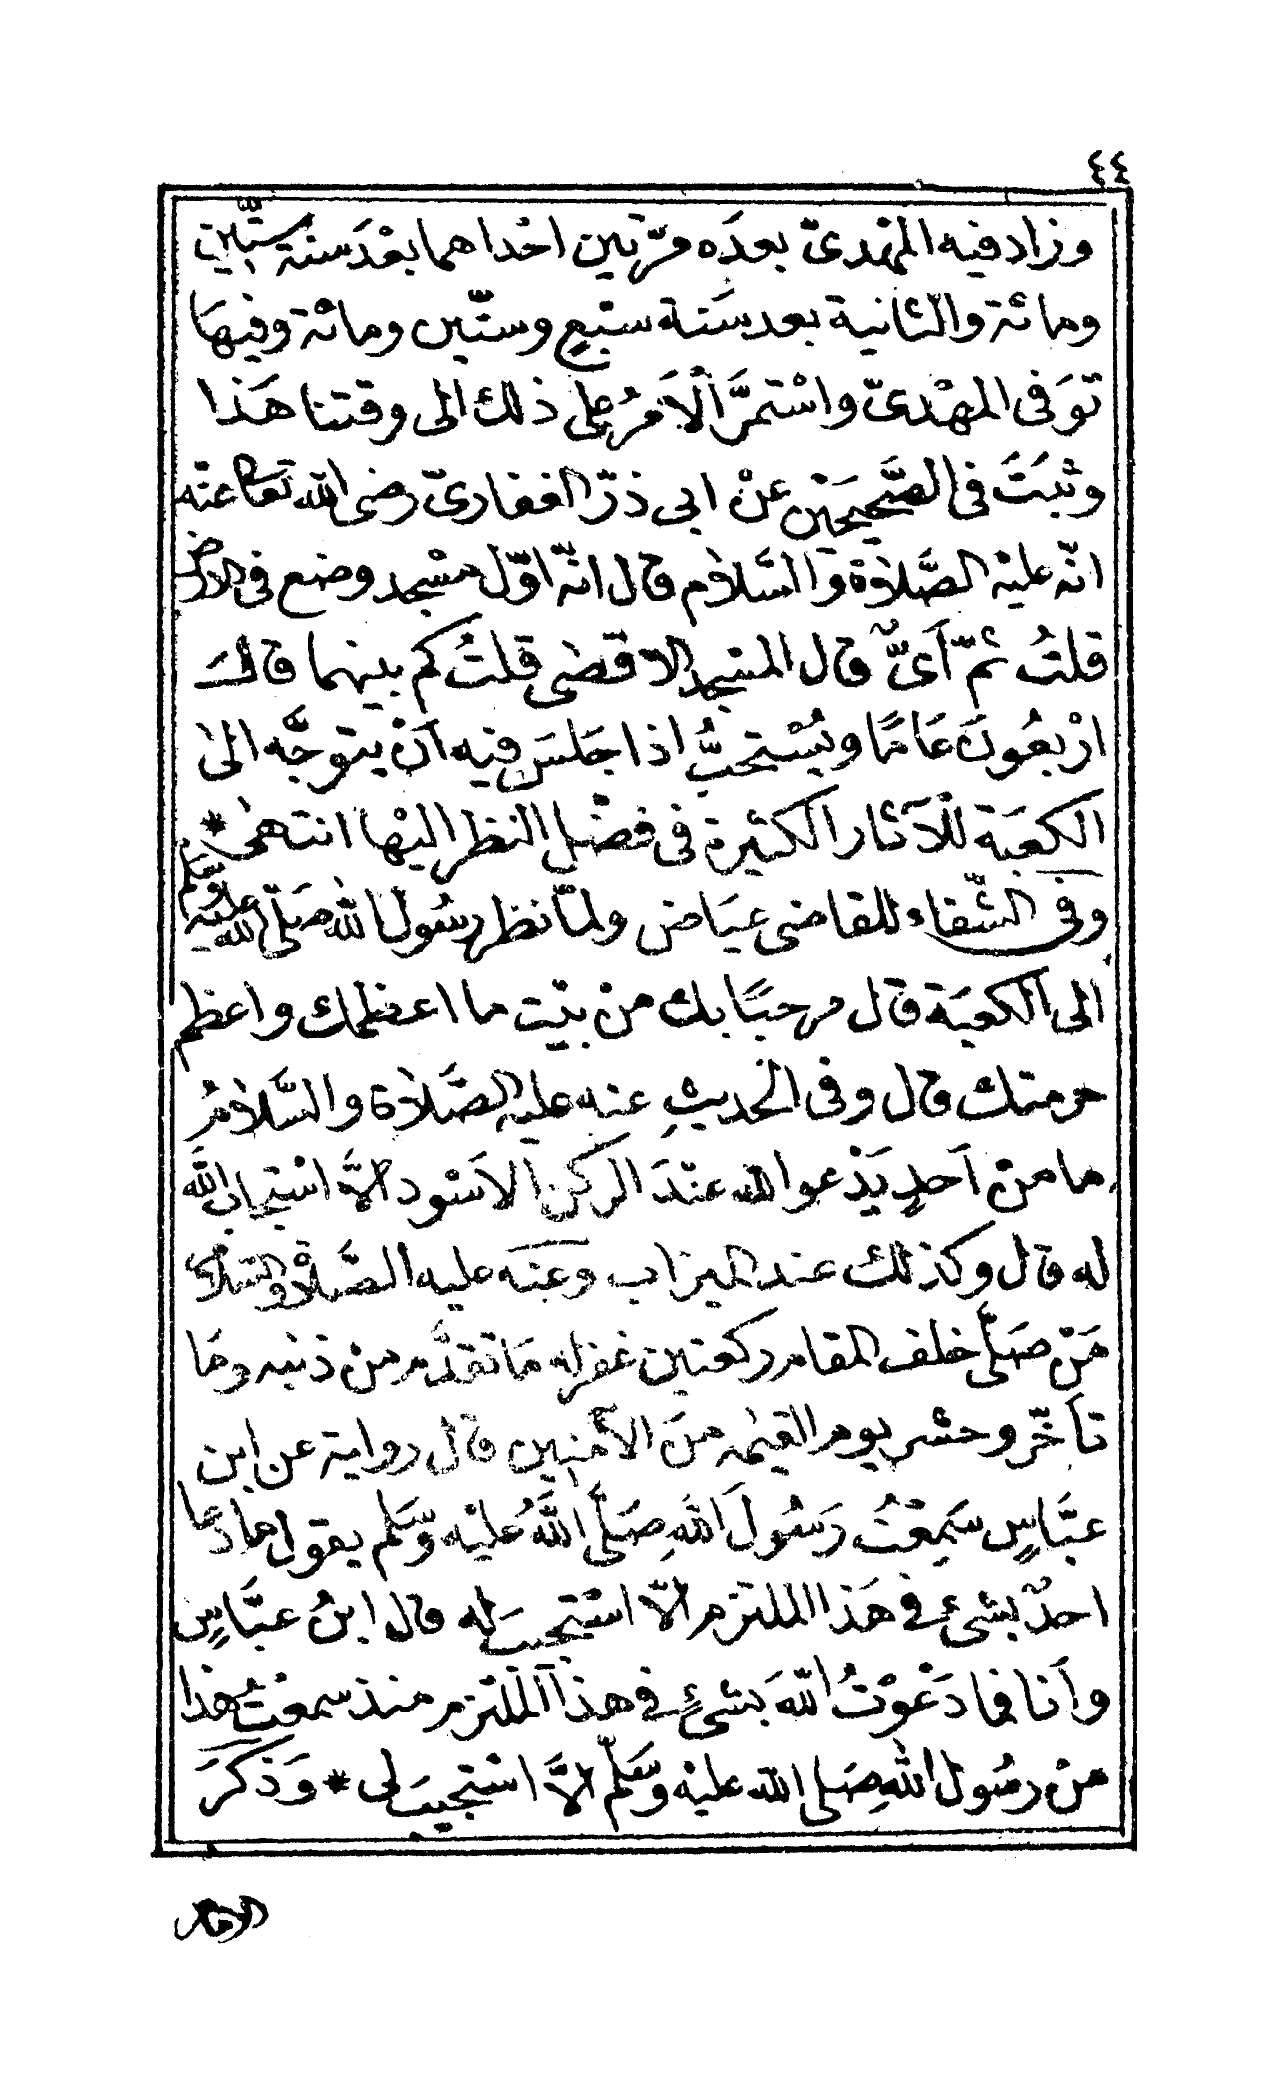 ٤٤
وزاد فيه المهدىّ بعدَه مرّتين احْداهما بعْدَ سنة ستّين
ومائة والثانية بعد سَنة سبْعٍ وستّين ومائة وفيهَا
توَفى المهْدىّ واسْتمرَّ الْاَمرُ على ذلك الى وقتنا هَذا
وثبَتَ فى الصَّحيحَيْن عنْ ابى ذرّ الغفارىّ رضى الله تعالى عنْه
انّه عليْه الصَّلاة والسَّلام قال انّه اوّل مسْجد وضع فى الارض
قلتُ ثمّ اَىٌّ قال المسْجد الاقصٰى قلتُ كم بينهما قالَ
ارْبعُونَ عَامًا ويُسْتحبُّ اذا جَلسَ فيه اَنْ يتوجَّه الىٰ
الكعبَة للْآثار الكثيرة فى فضْل النظر اليْها انتهىٰ *
وفى الشّفاء للقاضى عيَاض ولمّا نظر رسُول الله صَلّى الله عليْه وسَلّم
الى الكعبَة قال مرحبًا بك منْ بيْت ما اعظمك واعظم
حرمتك قال وفى الحديثِ عنه عليه الصَّلاة والسَّلامُ
ما منْ اَحدٍ يَدْعوا الله عنْدَ الركن الاَسْود الاَّ اسْتجاب اللَّه
له قال وكذلك عند الميزاب وعنه عليه الصَّلاة والسَّلام
مَنْ صَلَّى خلف المقام ركعتين غفر له مَا تقدَّم منْ ذنبه ومَا
تأخّر وحشر يوم القيٰمه منَ الآمنين قال رواية عن ابن
عبَّاسٍ سَمِعْتُ رَسُولَ اللهِ صَلَّى اللَّهُ عليْه وسَّلم يقول ما دعا
احدٌ بشئٍ فى هَذا الملتزم الاّ اسْتجيبَ له قال ابنُ عبَّاسٍ
واَنا فما دَعَوْتُ اللّهَ بشئٍ فى هذا الملتزم منذ سمعْتُ هذا
منْ رسُول اللهِ صَلى الله عليْه وسَلّم الاَّ اسْتجيبَ لى * وَذكرَ
الامام